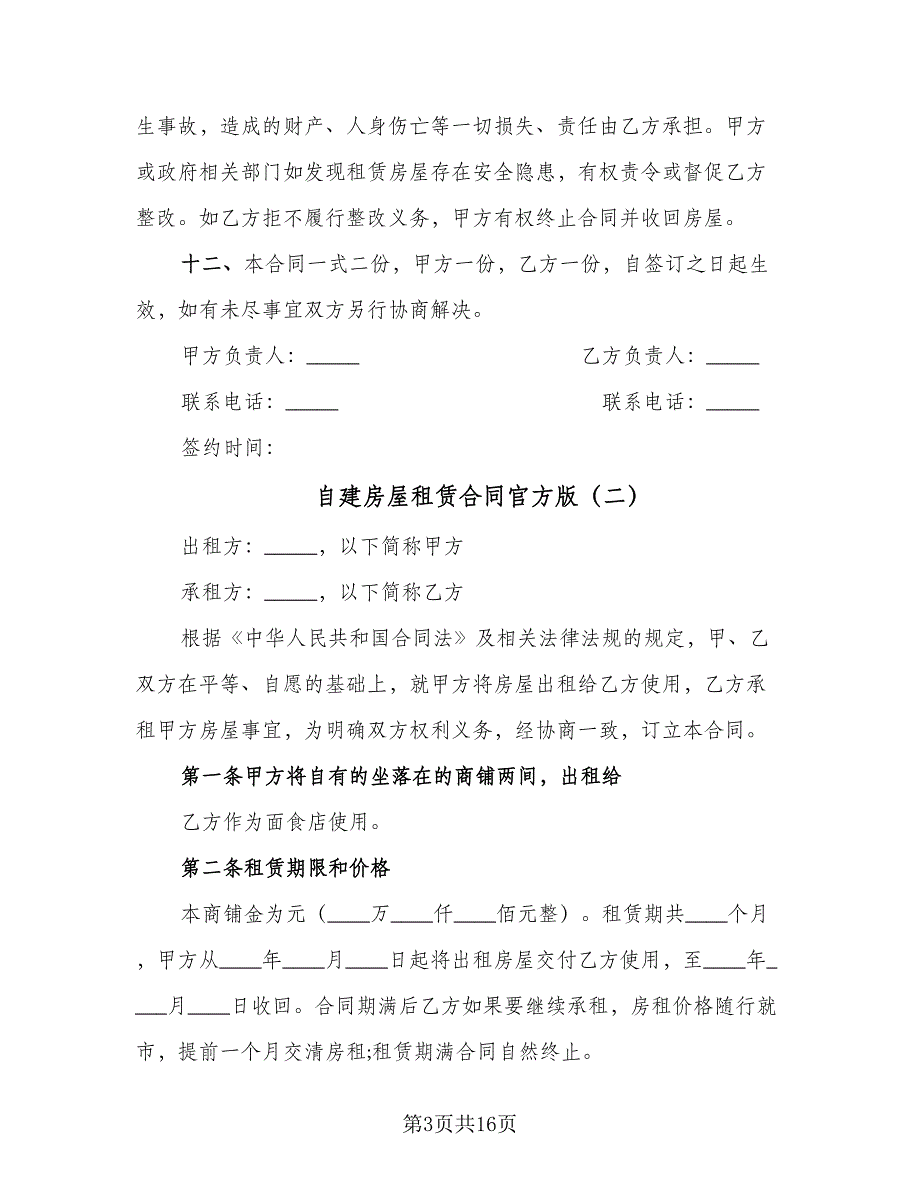 生事故，造成的财产、人身伤亡等一切损失、责任由乙方承担。甲方
或政府相关部门如发现租赁房屋存在安全隐患，有权责令或督促乙方
整改。如乙方拒不履行整改义务，甲方有权终止合同并收回房屋。
十二、本合同一式二份，甲方一份，乙方一份，自签订之日起生
效，如有未尽事宜双方另行协商解决。
甲方负责人：_____ 乙方负责人：_____
联系电话：_____ 联系电话：_____
签约时间：
自建房屋租赁合同官方版（二）
出租方：_____，以下简称甲方
承租方：_____，以下简称乙方
根据《中华人民共和国合同法》及相关法律法规的规定，甲、乙
双方在平等、自愿的基础上，就甲方将房屋出租给乙方使用，乙方承
租甲方房屋事宜，为明确双方权利义务，经协商一致，订立本合同。
第一条甲方将自有的坐落在的商铺两间，出租给
乙方作为面食店使用。
第二条租赁期限和价格
本商铺金为元（____万____仟____佰元整）。租赁期共____个月
，甲方从____年____月____日起将出租房屋交付乙方使用，至____年_
___月____日收回。合同期满后乙方如果要继续承租，房租价格随行就
市，提前一个月交清房租;租赁期满合同自然终止。
第3页共16页